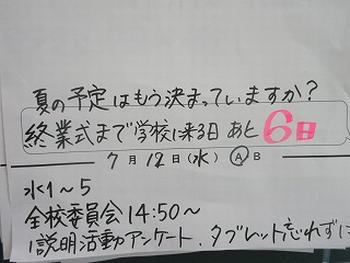 夏の予定はもう決まっていますか?
終業式まで学校に来る日 あと6日
7月12日(水) Ⓐ B
水1~5
全校委員会14:50~
説明活動アンケート、タブレット忘れずに